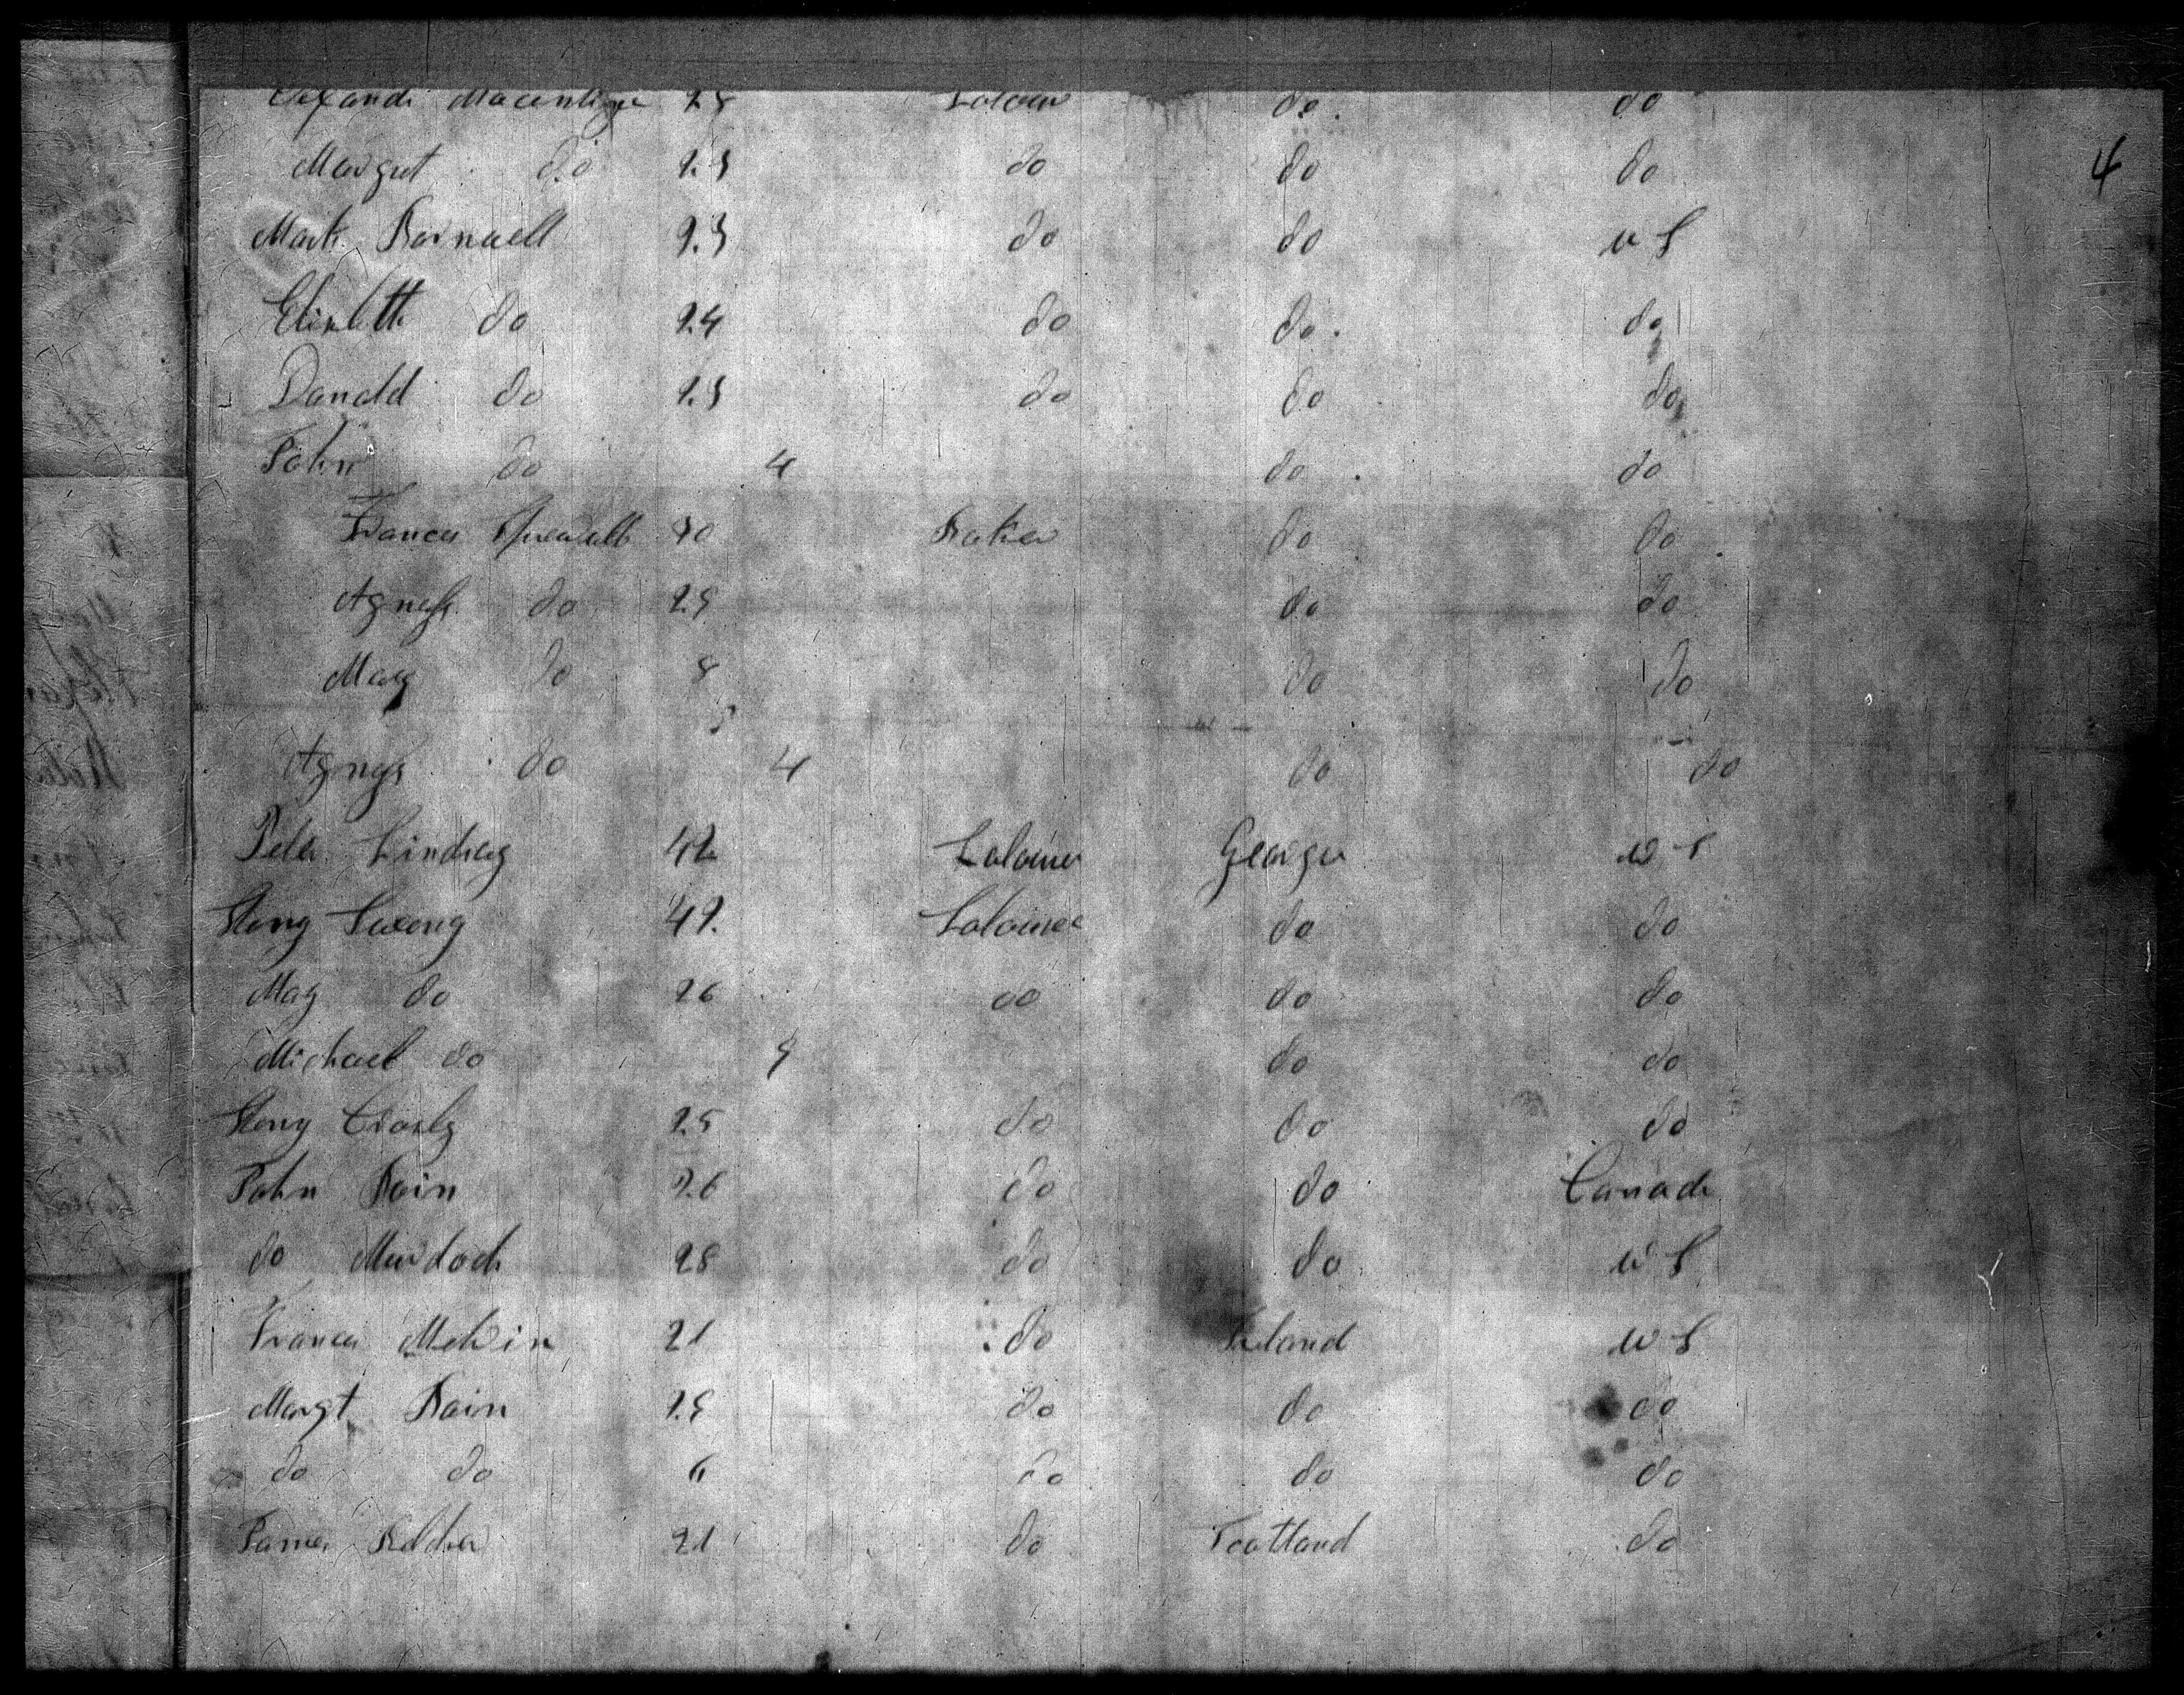 28 do do
4
Margret do 23 do do do
Mark Barnwell 23 do do U S
Elizbeth do 24 do do do
Donald do 23 do do do
John do 4 do do
Frances 30 Baker do do
Agness do 25 do do
Mary do 8 do do
Agness do 4 do do
Peter Lindsay 42 Labourer George U S
Henry 42 Labourer do do
Mary do 26 do do do
Michael do 9 do do
Henry Crosly 25 do do do
John Bain 26 do do Canada
do Murdoch 28 do do U S
Frances Melvin 21 do Ireland U S
Margt Bain 25 do do do
do do 6 do do do
James 21 do Scotland do